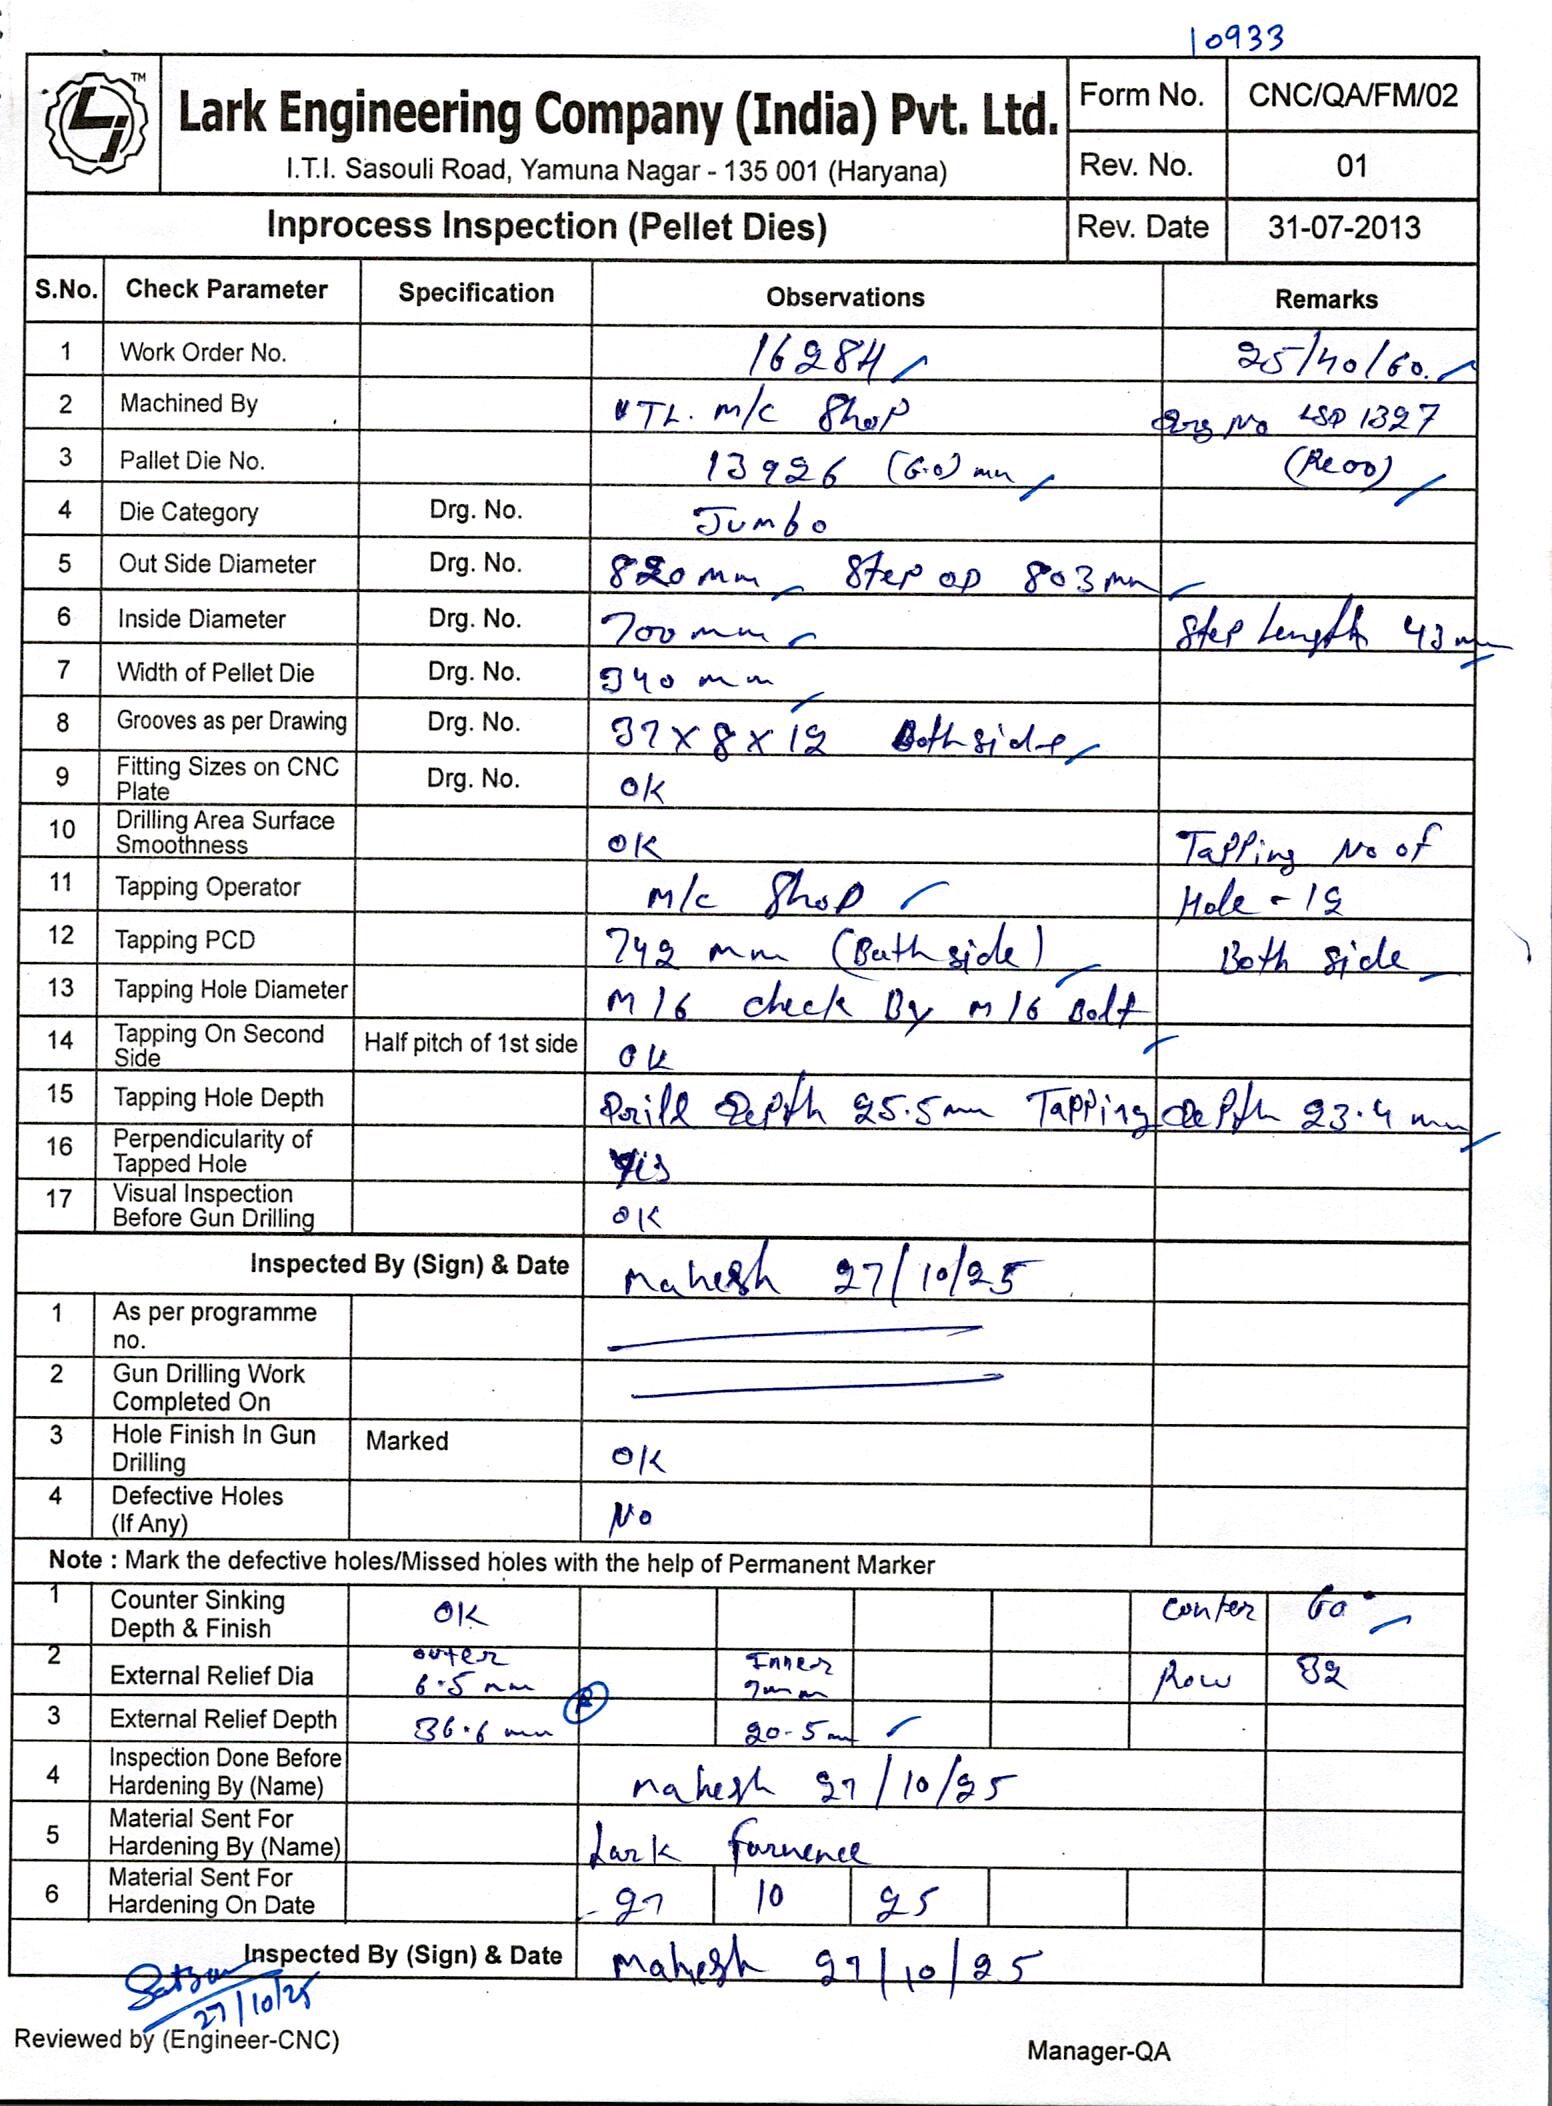 10933
LJ TM
Lark Engineering Company (India) Pvt. Ltd.
I.T.I. Sasouli Road, Yamuna Nagar - 135 001 (Haryana)
Form No. CNC/QA/FM/02
Rev. No. 01
Inprocess Inspection (Pellet Dies) Rev. Date 31-07-2013
S.No. Check Parameter Specification Observations Remarks
1 Work Order No. 16284 25/40/60.
2 Machined By VTL. m/c Shop Drg No LSD 1327
3 Pallet Die No. 13926 (6.0) mm (Re00)
4 Die Category Drg. No. Jumbo
5 Out Side Diameter Drg. No. 820 mm Step OD 803 mm
6 Inside Diameter Drg. No. 700 mm Step Length 43 mm
7 Width of Pellet Die Drg. No. 340 mm
8 Grooves as per Drawing Drg. No. 37 x 8 x 12 Both side
9 Fitting Sizes on CNC Plate Drg. No. OK
10 Drilling Area Surface Smoothness OK Tapping No of
11 Tapping Operator m/c Shop Hole - 12
12 Tapping PCD 742 mm (Both side) Both side
13 Tapping Hole Diameter M16 check By M16 Bolt
14 Tapping On Second Side Half pitch of 1st side OK
15 Tapping Hole Depth Drill Depth 25.5 mm Tapping Depth 23.4 mm
16 Perpendicularity of Tapped Hole Yes
17 Visual Inspection Before Gun Drilling OK
Inspected By (Sign) & Date Mahesh 27/10/25
1 As per programme no.
2 Gun Drilling Work Completed On
3 Hole Finish In Gun Drilling Marked OK
4 Defective Holes (If Any) No
Note : Mark the defective holes/Missed holes with the help of Permanent Marker
1 Counter Sinking Depth & Finish OK Conter 60°
2 External Relief Dia outer 6.5 mm Inner 7mm Row 32
3 External Relief Depth 36.6 mm 20.5 mm
4 Inspection Done Before Hardening By (Name) Mahesh 27/10/25
5 Material Sent For Hardening By (Name) Lark Furnence
6 Material Sent For Hardening On Date 27 10 25
Inspected By (Sign) & Date Mahesh 27/10/25
27/10/25
Reviewed by (Engineer-CNC) Manager-QA